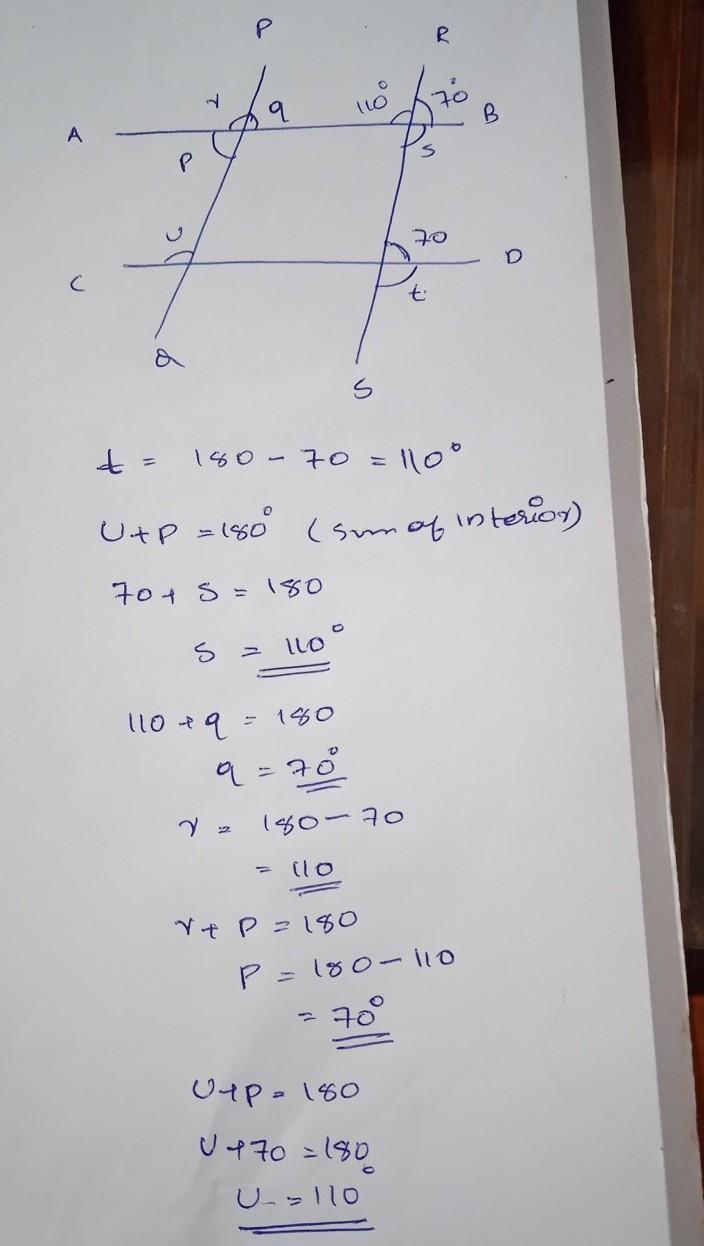 P R
r q 110° 70°
A B
P S
U 70
C D
t
Q
S
t = 180 - 70 = 110°
U + P = 180° (sum of interior)
70 + S = 180
S = 110°
110 + q = 180
q = 70°
r = 180 - 70
= 110
r + P = 180
P = 180 - 110
= 70°
U + P = 180
U + 70 = 180
U = 110°